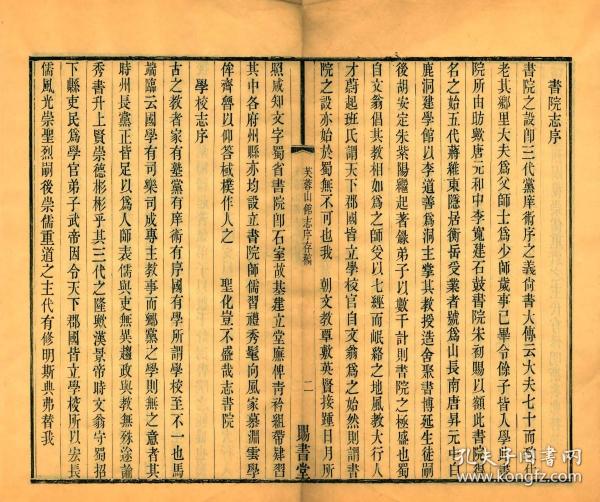 書院志序
書院之設卽三代黨庠術序之義尙書大傳云大夫七十而致仕
老其鄉里大夫爲父師士爲少師歲事已畢令餘子皆入學此書
院所由昉歟唐元和中李寬建石鼓書院宋初賜以額此書院得
名之始五代蔣維東隱居衡岳受業者號爲山長南唐昇元中白
鹿洞建學館以李道善爲洞主掌其教授造舍聚書博延生徒嗣
後胡安定朱紫陽繼起著錄弟子以數千計則書院之極盛也蜀
自文翁倡其教相如爲之師受以七經而岷絡之地風教大行人
才蔚起班氏謂天下郡國皆立學校官自文翁爲之始然則謂書
院之設亦始於蜀無不可也我　朝文教覃敷英賢接踵日月所
芙蓉山館志序存稿
二
賜書堂
照咸知文字蜀省書院卽石室故基建立堂廡俾青衿組帶肄習
其中各府州縣亦均設立書院師儒習禮秀髦向風家慕淵雲學
侔齊魯以仰答棫樸作人之　聖化豈不盛哉志書院
學校志序
古之教者家有塾黨有庠術有序國有學所謂學校至不一也馬
端臨云國學有司樂司成專主教事而鄉黨之學則無之意者其
時州長黨正皆足以爲人師表儒與吏無異趨政與教無殊途諭
秀書升上賢崇德彬彬乎其三代之隆歟漢景帝時文翁守蜀招
下縣吏民爲學官弟子武帝因令天下郡國皆立學校所以宏長
儒風光崇聖烈嗣後崇儒重道之主代有修明斯典弗替我
孔夫子旧书网
kongfz.com